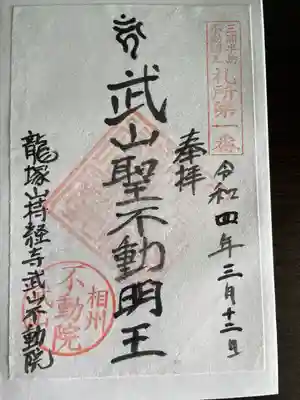 三浦半島
不動明王
札所第一番
奉拝
令和四年三月十二日
武山聖不動明王
相州
不動院
武山
龍塚山持経寺武山不動院